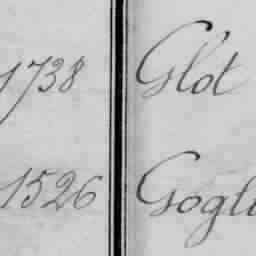 1738 Glot
1526 Gogli